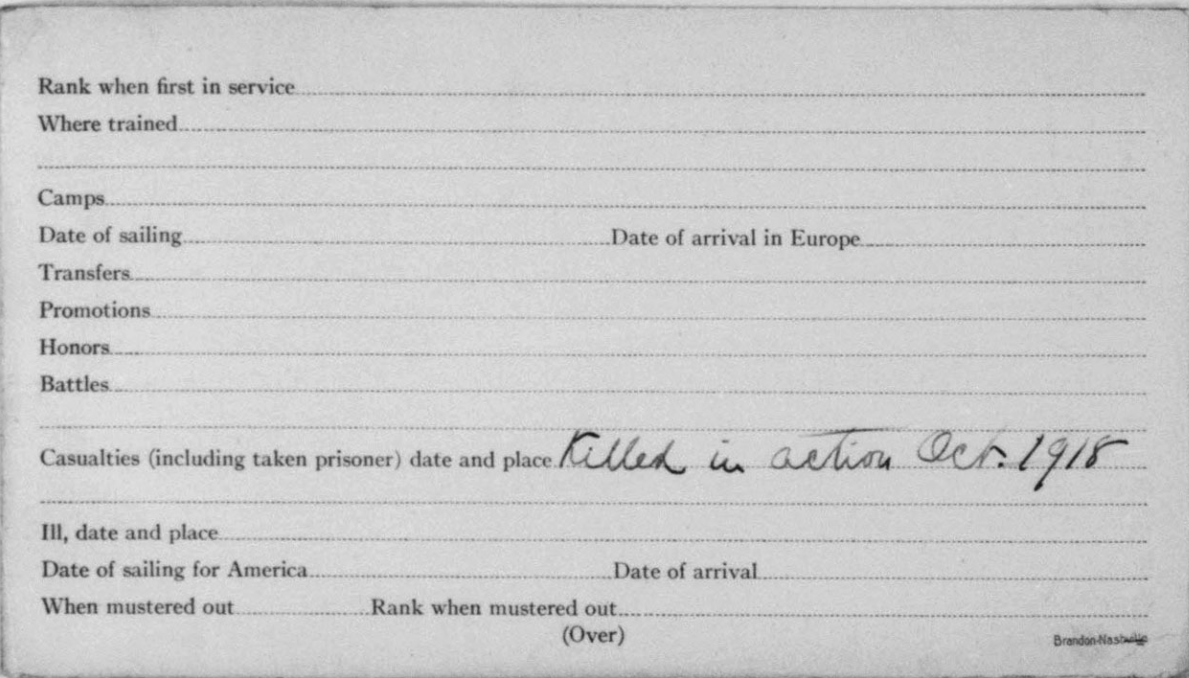 Rank when first in service
Where trained
Camps
Date of sailing Date of arrival in Europe
Transfers
Promotions
Honors
Battles
Casualties (including taken prisoner) date and place Killed in action Oct. 1918
Ill, date and place
Date of sailing for America Date of arrival
When mustered out Rank when mustered out
(Over)
Brandon-Nashville